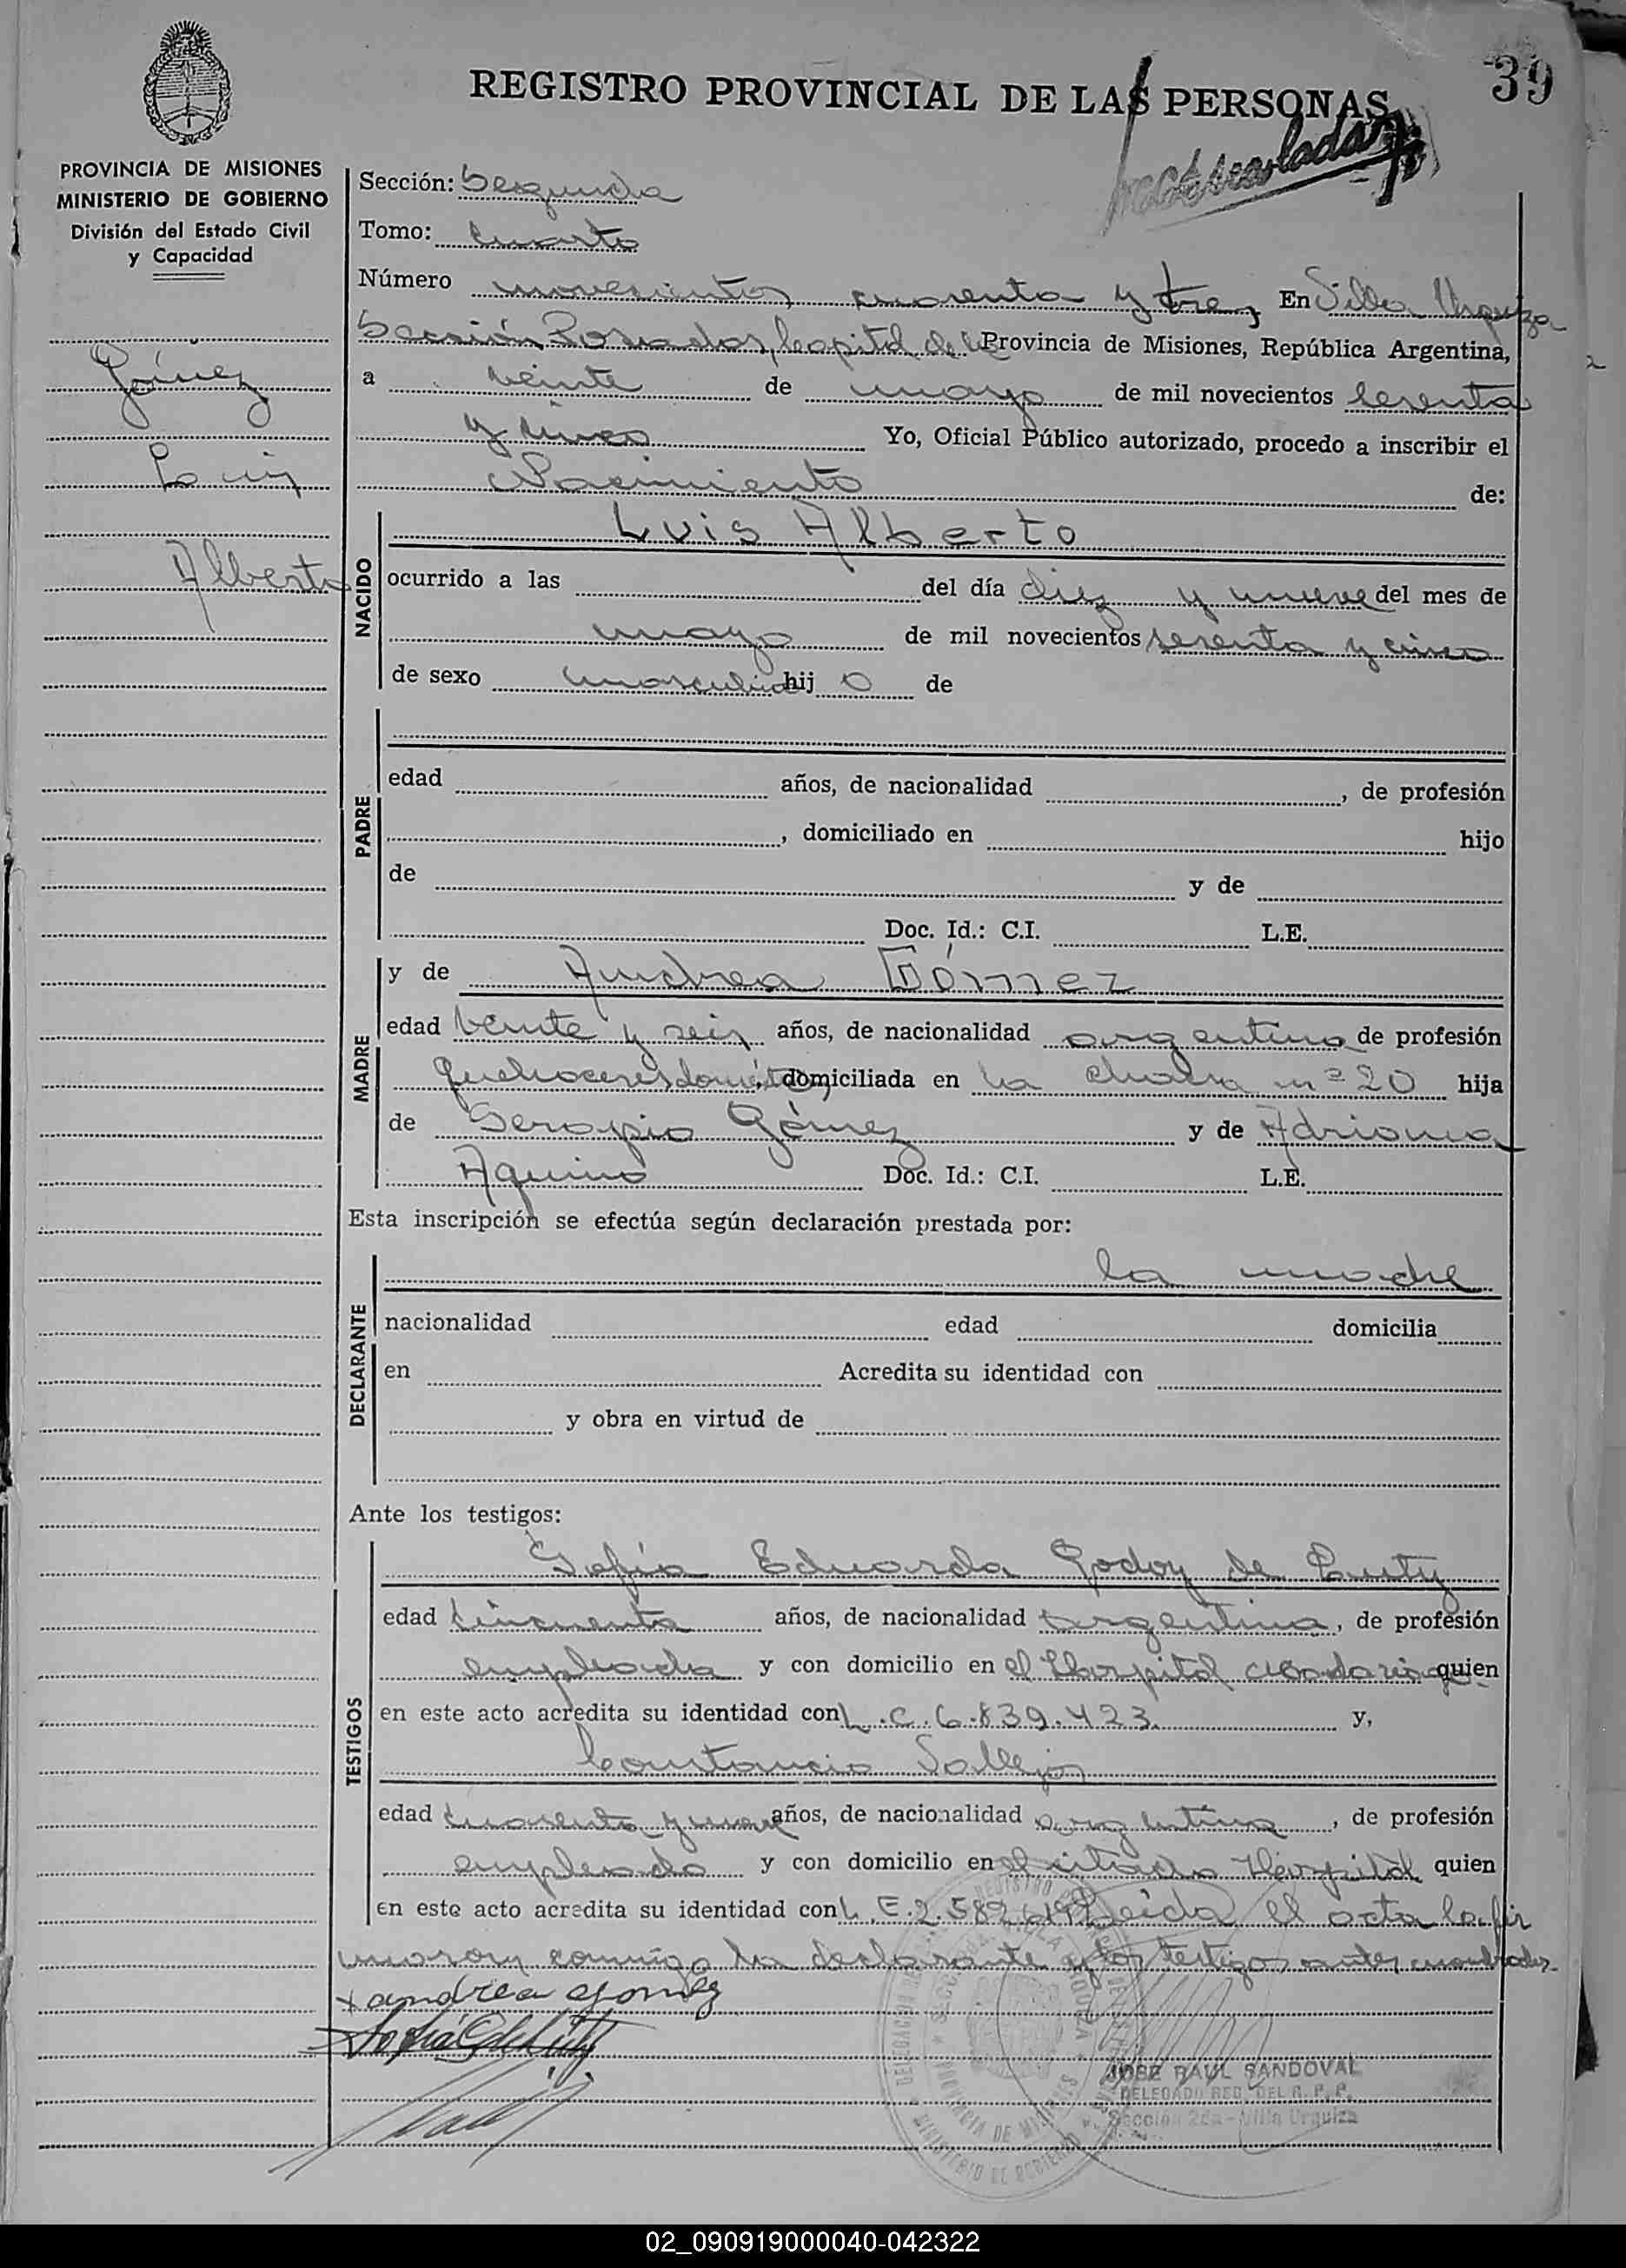 39
REGISTRO PROVINCIAL DE LAS PERSONAS
PROVINCIA DE MISIONES
MINISTERIO DE GOBIERNO
División del Estado Civil
y Capacidad
Gómez
Luis
Alberto
Sección: Segunda
Tomo: Cuarto
Número novecientos cuarenta y tres En Villa Urquiza
Sección Posadas, Capital de la Provincia de Misiones, República Argentina,
a veinte de mayo de mil novecientos sesenta
y cinco Yo, Oficial Público autorizado, procedo a inscribir el
Nacimiento de:
NACIDO
Luis Alberto
ocurrido a las del día diez y nueve del mes de
mayo de mil novecientos sesenta y cinco
de sexo masculino hij o de
PADRE
edad años, de nacionalidad , de profesión
, domiciliado en hijo
de y de
Doc. Id.: C.I. L.E.
MADRE
y de Andrea Gómez
edad veinte y seis años, de nacionalidad argentina de profesión
quehaceres domésticos domiciliada en la chacra nº 20 hija
de Serapio Gómez y de Adriana
Aquino Doc. Id.: C.I. L.E.
Esta inscripción se efectúa según declaración prestada por:
DECLARANTE
la madre
nacionalidad edad domicilia
en Acredita su identidad con
y obra en virtud de
Ante los testigos:
TESTIGOS
Sofía Eduarda Godoy de
edad cincuenta años, de nacionalidad argentina, de profesión
empleada y con domicilio en el Hospital quien
en este acto acredita su identidad con L.C. 6.839.423. y,
Constancio Vallejos
edad cuarenta y nueve años, de nacionalidad argentina , de profesión
empleado y con domicilio en el citado Hospital quien
en este acto acredita su identidad con L.E. 2.582. Leída el acta la fir
maron conmigo la declarante y los testigos antes nombrados
x andrea gomez
JOSE RAUL SANDOVAL
DELEGADO REG. DEL R. P. P.
Sección 2da - Villa Urquiza
02_090919000040-042322